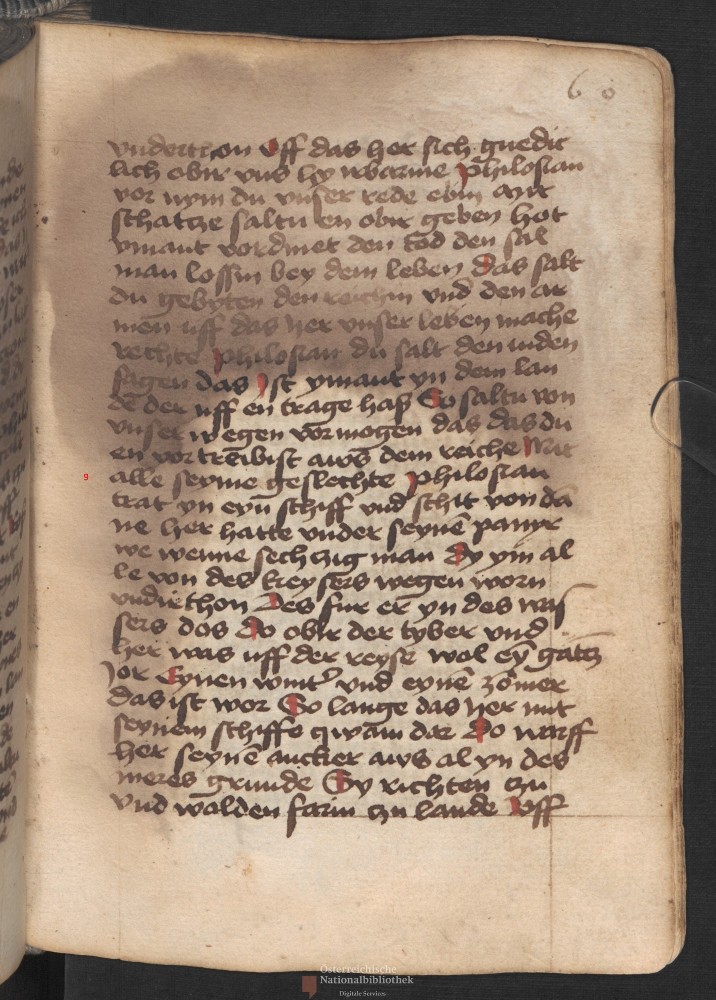 6 0
vndertthon Vff das her sich gnedic
lich obir vns hy irbarme philosian
vor nym du vnser rede ebin
schatze saltu en obir geben hot
ymant vordinet den tod den sal
man lossin bey dem leben das salt
du gebyten den reichin vnd den ar
men uff das her vnser leben mache
rechte philosian du salt den inden
sagen das Ist ymant yn dem lan
de der uff en trage hass So saltu von
vnser wegen vormogen das das du
en vortreibist aws dem reiche Mit
9
alle seyme geslechte philosian
trat yn eyn schiff vnd schit von da
ne her hatte vnder seyne panyr
we wenne sechzig man dy ym al
le von des keysers wegen worn
vndirthon Des fur er yn des was
sers dos do obir der tyber vnd
her was uff der reyse wol ey gatz
Jor Eynen wint vnd eyne zomer
das ist wor So lange das her mit
seynem schiffe qwam dar Do warff
her seyne ancker aws al yn des
meres grunde Sy richten zu
vnd wolden farin zu lande Vff
Österreichische
Nationalbibliothek
Digitale Services